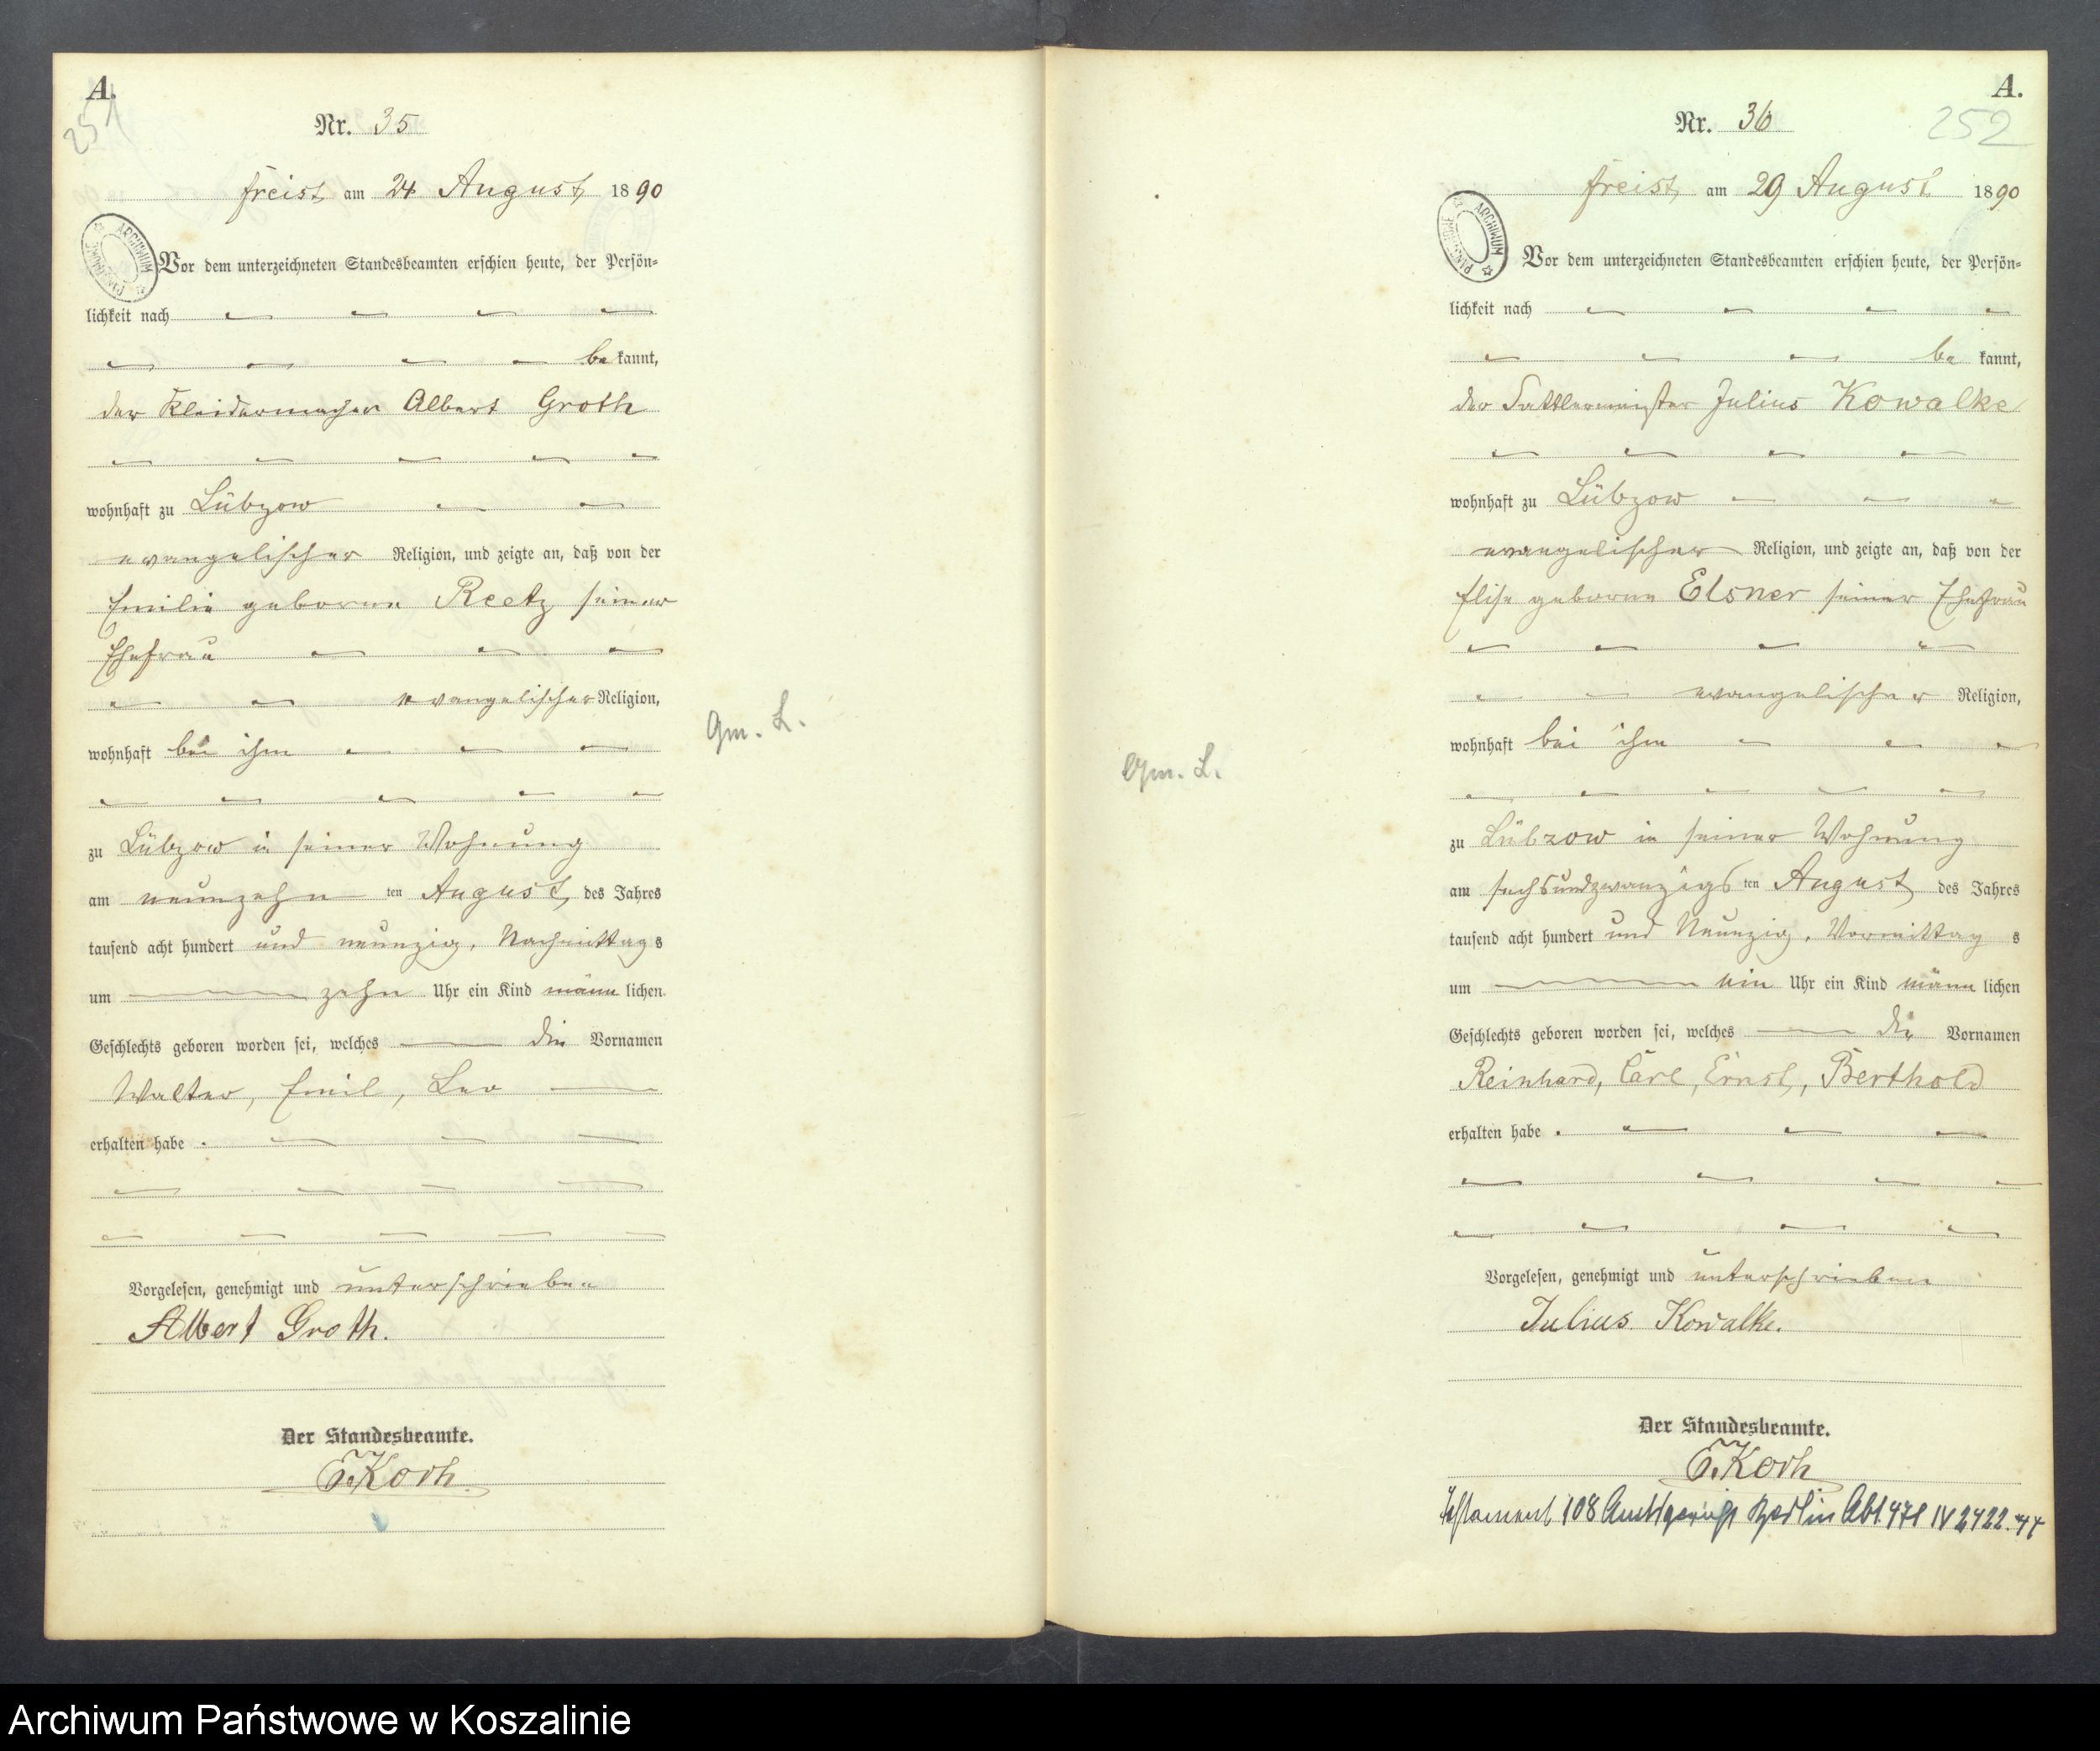 A.
251
Nr. 35
Freist, am 24 August, 1890
ARCHIWUM PAŃSTWOWE
Vor dem unterzeichneten Standesbeamten erschien heute, der Persön-
lichkeit nach
be kannt,
der Kleidermacher Albert Groth
wohnhaft zu Lübzow
evangelischer Religion, und zeigte an, daß von der
Emilie geborne Reetz seiner
Ehefrau
evangelischer Religion,
wohnhaft bei ihm
zu Lübzow in seiner Wohnung
am neunzehn ten August, des Jahres
tausend acht hundert und neunzig, Nachmittag s
um zehn Uhr ein Kind männ lichen
Geschlechts geboren worden sei, welches die Vornamen
Walter, Emil, Leo
erhalten habe.
Vorgelesen, genehmigt und unterschrieben
Albert Groth.
Der Standesbeamte.
Gm. L.
A.
252
Nr. 36
Freist, am 29 August 1890
ARCHIWUM PAŃSTWOWE
Vor dem unterzeichneten Standesbeamten erschien heute, der Persön-
lichkeit nach
be kannt,
der Sattlermeister Julius Kowalke
wohnhaft zu Lübzow
evangelischer Religion, und zeigte an, daß von der
Elise geborne Elsner seiner Ehefrau
evangelischer Religion,
wohnhaft bei ihm
Gm. L.
zu Lübzow in seiner Wohnung
am sechsundzwanzigs ten August, des Jahres
tausend acht hundert und Neunzig, Vormittag s
um ein Uhr ein Kind männ lichen
Geschlechts geboren worden sei, welches die Vornamen
Reinhard, Carl, Ernst, Berthold
erhalten habe.
Vorgelesen, genehmigt und unterschrieben
Julius Kowalke.
Der Standesbeamte.
Testament 108 Amtsgericht Berlin Abt. 471 IV 2422.44
Archiwum Państwowe w Koszalinie